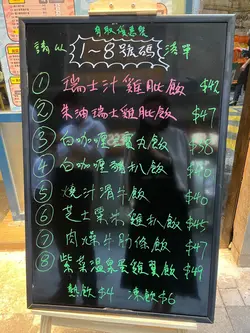 自取優惠餐
請以 1~8號碼 落單
① 瑞士汁雞髀飯 $42
② 朱油瑞士雞髀飯 $47
③ 白咖喱魚丸飯 $38
④ 白咖喱豬扒飯 $40
⑤ 燒汁滑牛飯 $40
⑥ 芝士粟米雞扒飯 $45
⑦ 肉燥牛肋條飯 $47
⑧ 紫菜溫泉蛋雞翼飯 $49
熱飲 $4 凍飲 $6